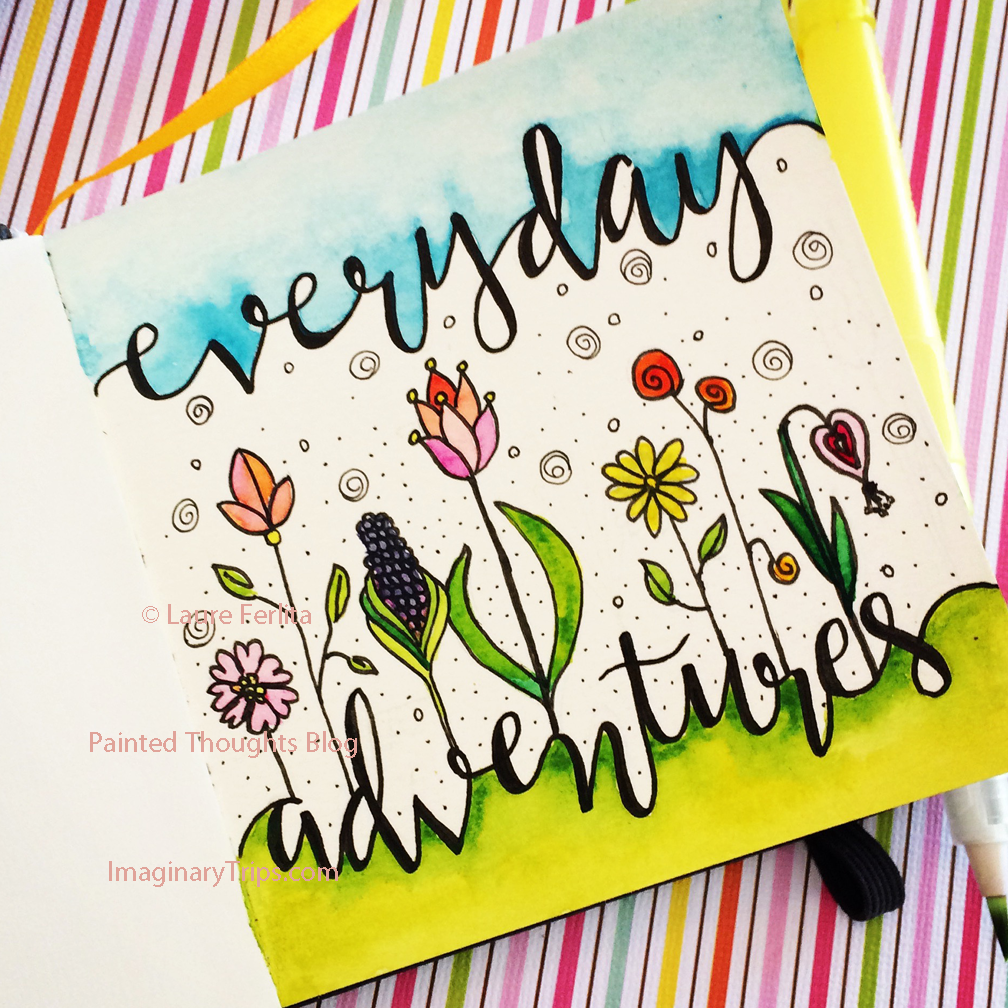 everyday
© Laure Ferlita
adventures
Painted Thoughts Blog
ImaginaryTrips.com